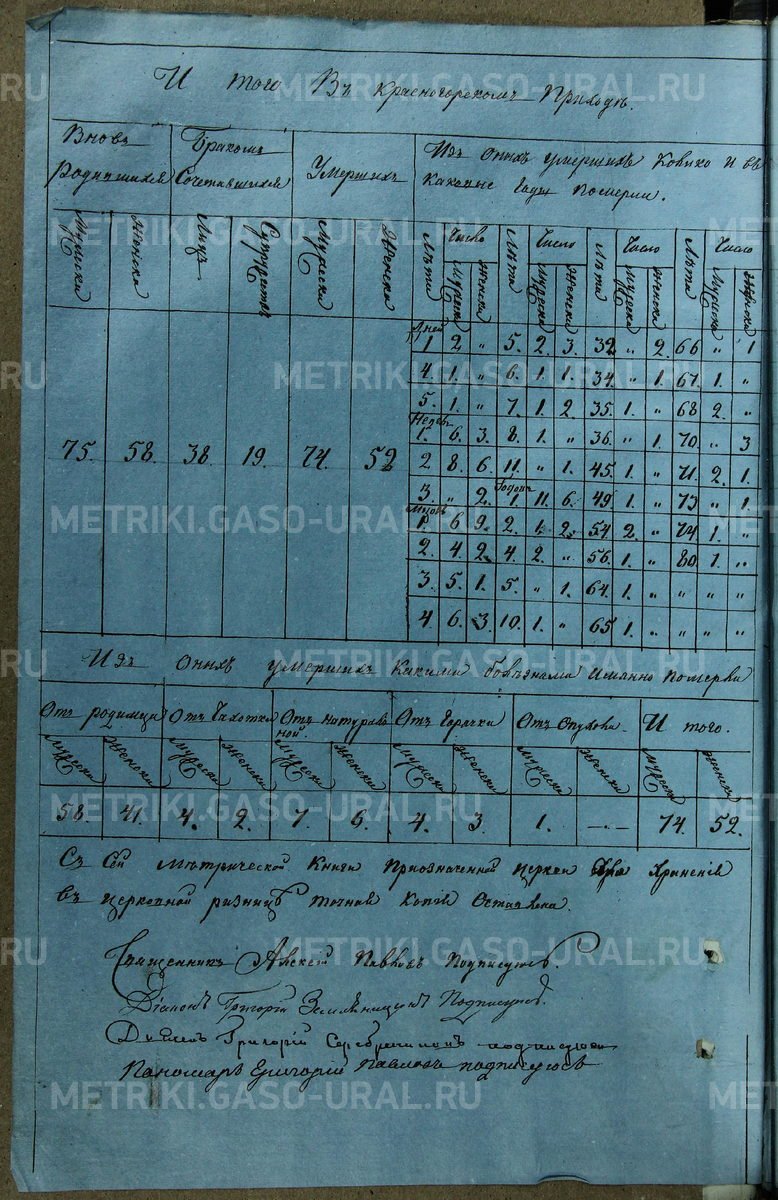 И того Въ Красногорскомъ Приходѣ.
Вновь родившихся
Бракомъ Сочетавшихся
Умершихъ
Изъ оныхъ умершихъ Колико и въ
Каковые Годы Померли.
Мужеска Женска Лицъ Супружествъ Мужеска Женска
Лѣта Число Лѣта Число Лѣта Число Лѣта Число
Мужеска Женска Мужеска Женска Мужеска Женска Мужеска Женска
75. 58. 38. 19. 74. 52
Дней
1 2 „ 5. 2. 3. 32 „ 2. 66 „ 1
4. 1. „ 6. 1. 1. 34. „ 1. 67. 1. „
5. 1. „ 7. 1. 2. 35. 1. „ 68 2. „
Недель
1. 6. 3. 8. 1. „ 36. „ 1. 70. „ 3
2 8. 6. 11. „ 1. 45. 1. „ 71. 2. 1.
Годовъ
3. „ 2. 1. 11. 6. 49. 1. „ 73 „ 1
Мцовъ
1. 6 9. 2. 1. 2. 54 2. „ 74 1. „
2. 4. 2. 4. 2. „ 56. 1. „ 80. 1. „
3. 5. 1. 5. „ 1. 64. 1. „ „ „ „
4. 6. 3. 10. 1. „ 65 1. „ „ „ „
Изъ оныхъ умершихъ Какими болѣзнами имянно померли
Отъ родимца Отъ Чахотки Отъ натуральной Отъ Горячки Отъ Опухоли. И того.
Мужеска Женска Мужеска Женска Мужеска Женска Мужеска Женска Мужеска Женска Мужеска Женска
58. 41. 4. 2. 7. 6. 4. 3. 1. — 74. 52.
Съ Сей Мѣтрической Книги Приозначенной церкви для Хранения
въ церковной ризницѣ точная Копія Оставлена.
Священникъ Алексей Павловъ Подписуюсь.
Діаконъ Григорій Земляницынъ Подписуюсь.
Дьячекъ Григорій Серебренниковъ подписуюсь
Пономарь Григорій Павловъ подписуюсь
METRIKI.GASO-URAL.RU